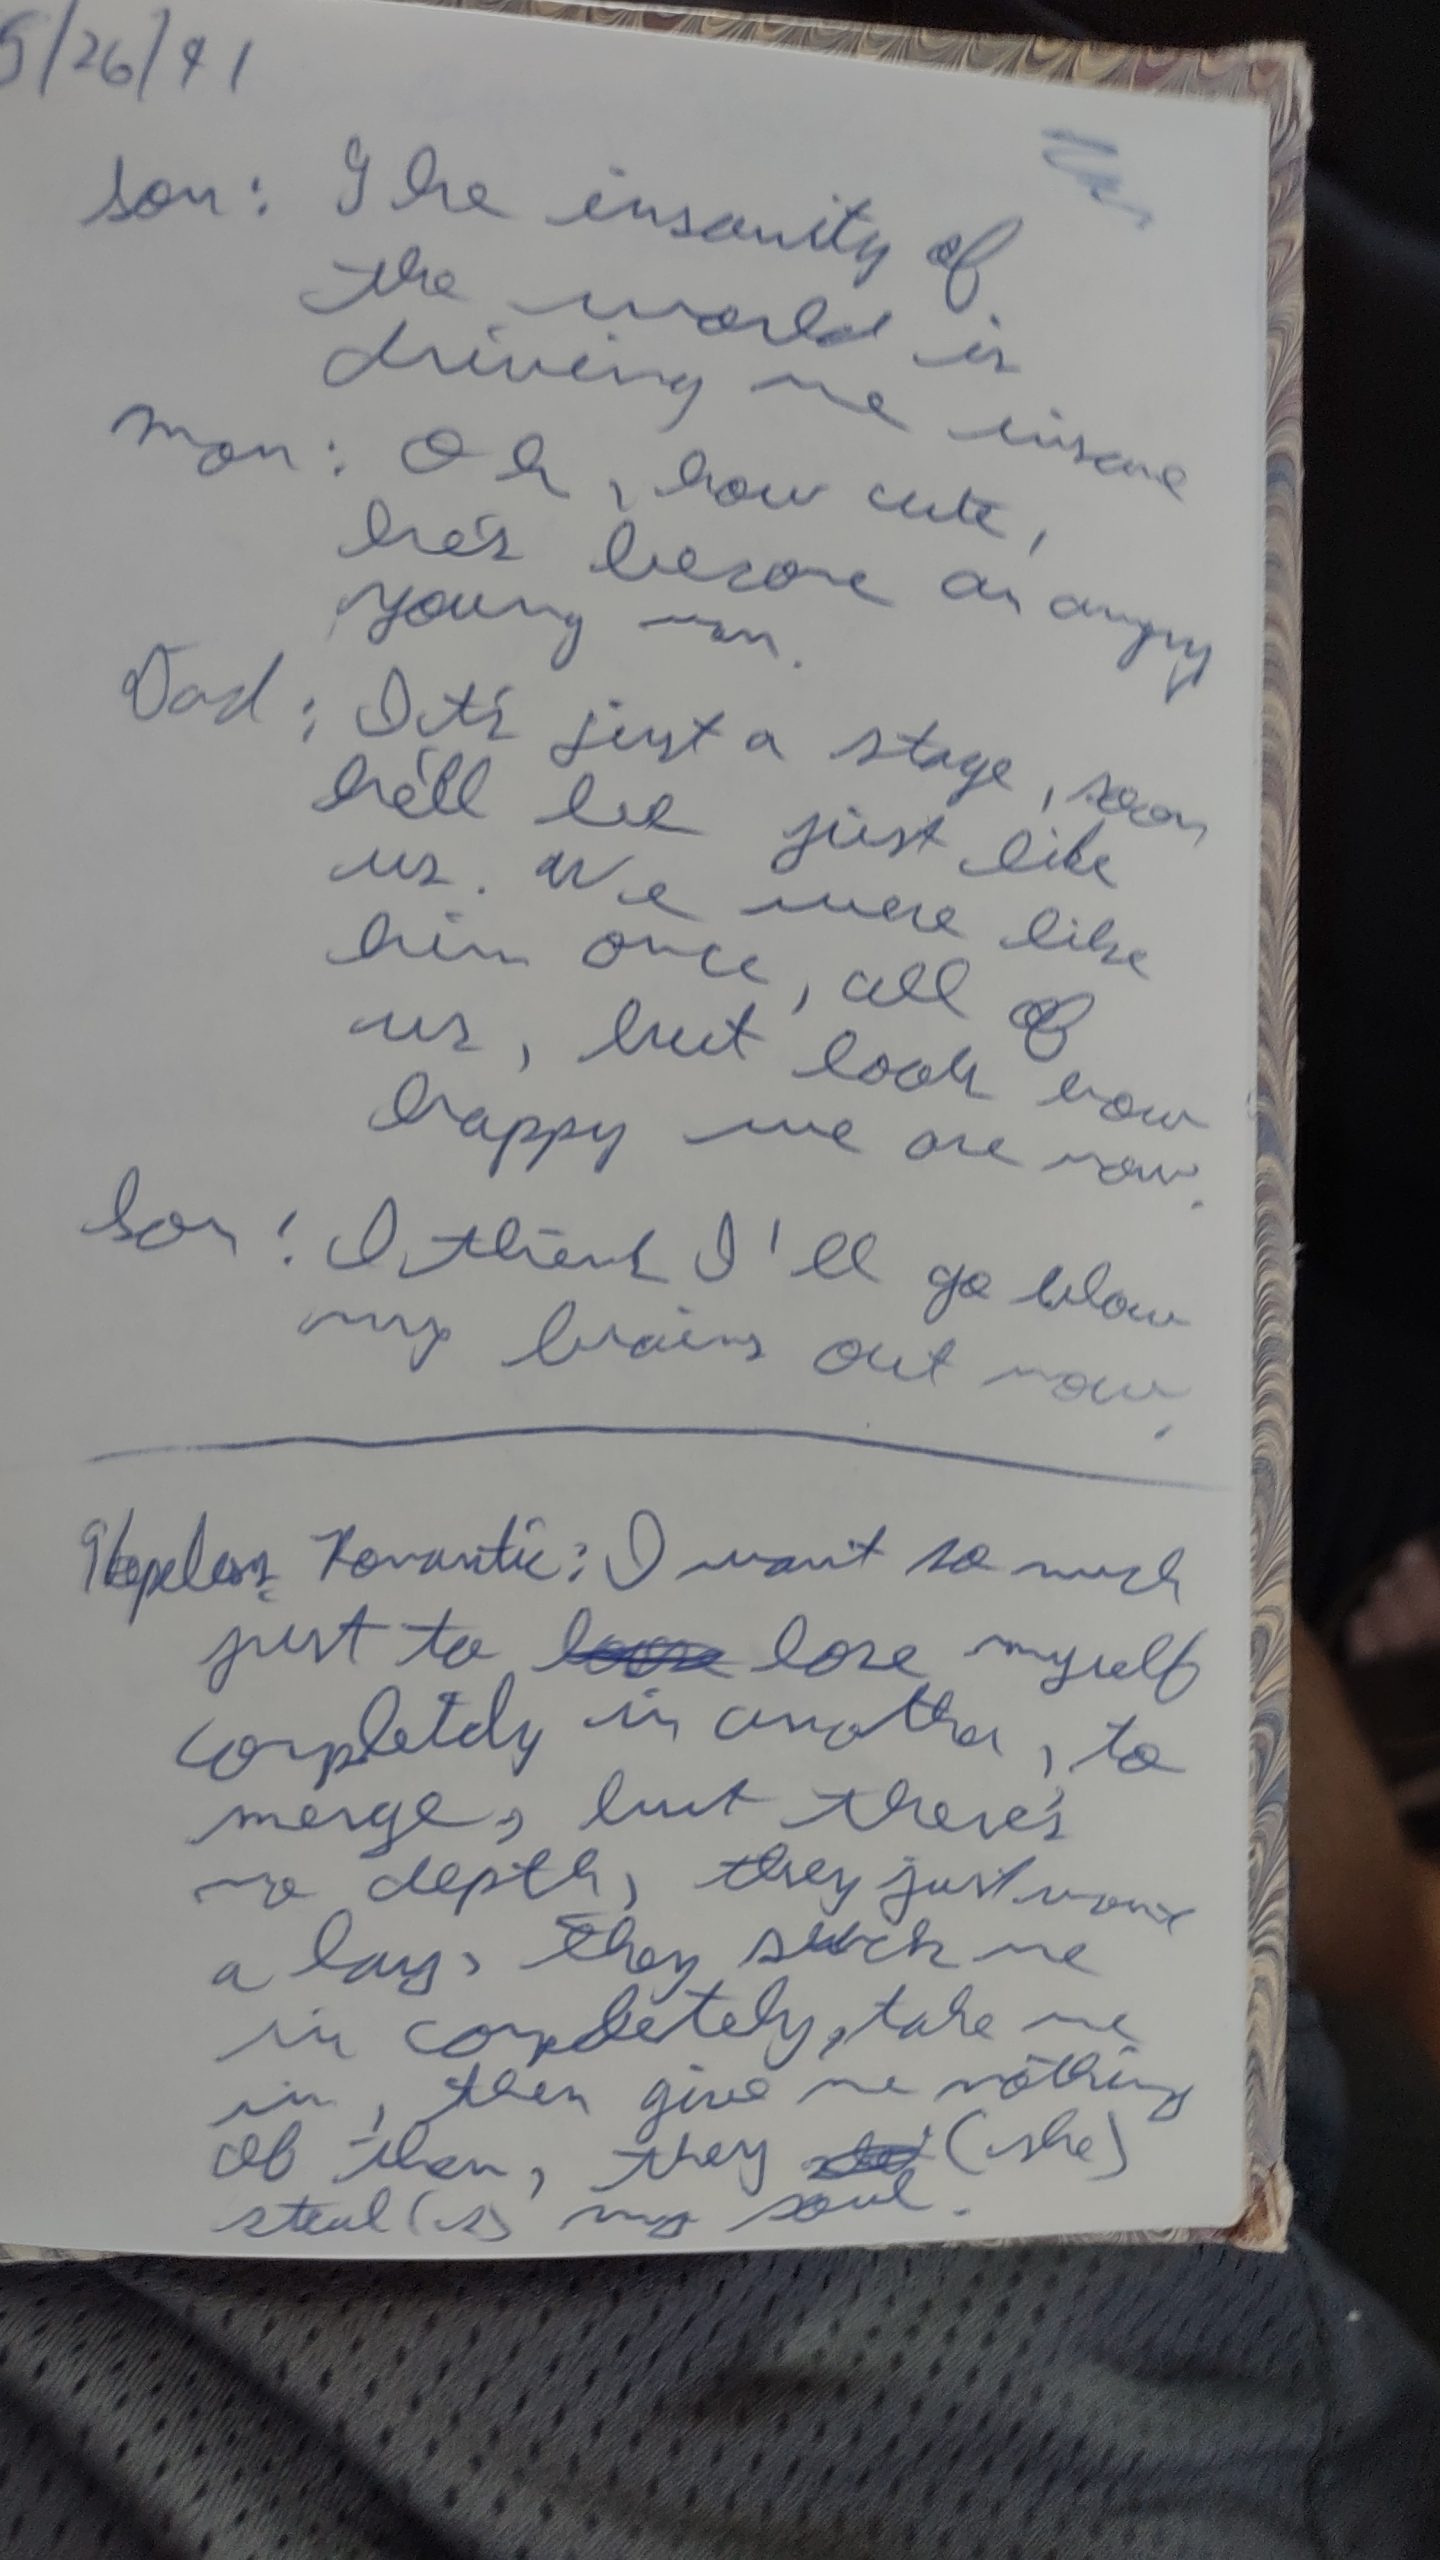 5/26/91
Son: The insanity of
the world is
driving me insane
Mom: Oh, how cute,
he's become an angry
young man.
Dad: It's just a stage, soon
he'll be just like
us. We were like
him once, all of
us, but look how
happy we are now.
Son: I think I'll go blow
my brains out now.
Hopeless Romantic: I want so much
just to loose lose myself
completely in another, to
merge, but there's
no depth, they just want
a lay, they suck me
in completely, take me
in, then give me nothing
of them, they (she)
steal(s) my soul.